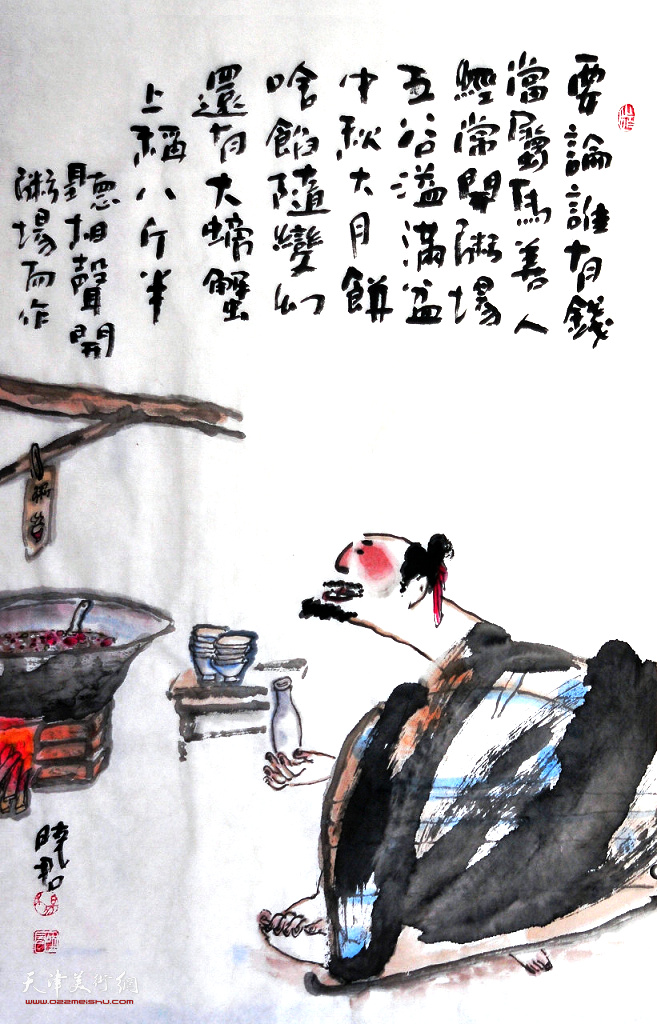 要論誰有錢
當屬馬善人
經常開粥場
五谷溢滿盆
中秋大月餅
啥餡隨變幻
還有大螃蟹
上稱八斤半
聽相聲開
粥場而作
粥
曉君
天津美術網
www.022meishu.com